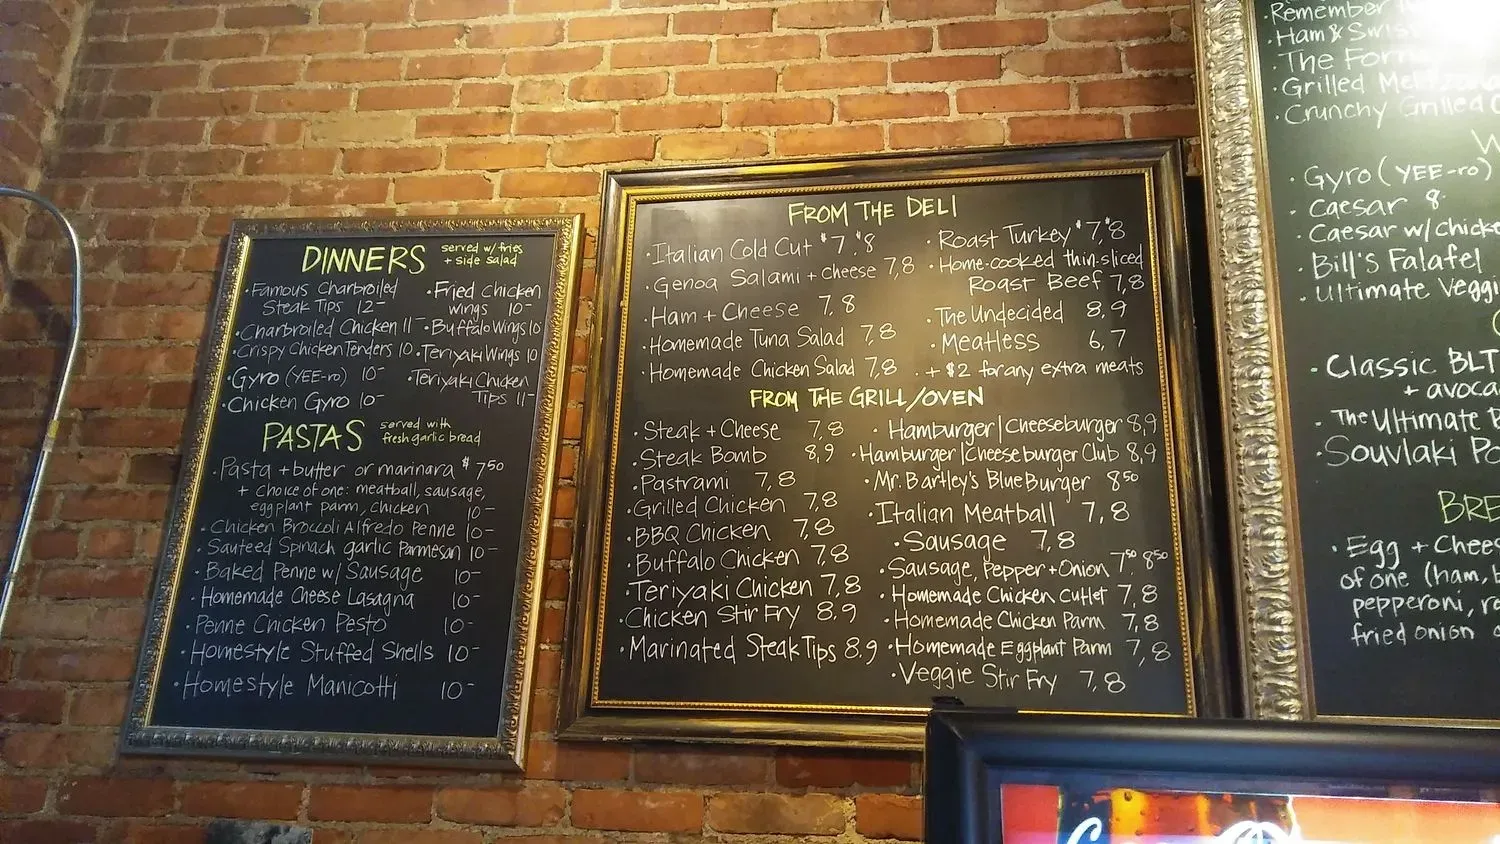 DINNERS served w/ fries
+ side salad
·Famous Charbroiled
Steak Tips 12-
·Charbroiled Chicken 11-
·Crispy Chicken Tenders 10
·Gyro (YEE-ro) 10-
·Chicken Gyro 10-
·Fried Chicken
wings 10-
·Buffalo Wings 10
·Teriyaki Wings 10
·Teriyaki Chicken
Tips 11-
PASTAS served with
fresh garlic bread
·Pasta + butter or marinara $7 50
+ Choice of one: meatball, sausage,
eggplant parm, chicken 10-
·Chicken Broccoli Alfredo Penne 10-
·Sauteed Spinach garlic Parmesan 10-
·Baked Penne w/ Sausage 10-
·Homemade Cheese Lasagna 10-
·Penne Chicken Pesto 10-
·Homestyle Stuffed Shells 10-
·Homestyle Manicotti 10-
FROM THE DELI
·Italian Cold Cut $7 $8
·Genoa Salami + Cheese 7,8
·Ham + Cheese 7,8
·Homemade Tuna Salad 7,8
·Homemade Chicken Salad 7,8
·Roast Turkey $7,$8
·Home-cooked thin-sliced
Roast Beef 7,8
·The Undecided 8,9
·Meatless 6,7
·+ $2 for any extra meats
FROM THE GRILL/OVEN
·Steak + Cheese 7,8
·Steak Bomb 8,9
·Pastrami 7,8
·Grilled Chicken 7,8
·BBQ Chicken 7,8
·Buffalo Chicken 7,8
·Teriyaki Chicken 7,8
·Chicken Stir Fry 8.9
·Marinated Steak Tips 8.9
·Hamburger/Cheeseburger 8,9
·Hamburger/Cheeseburger Club 8,9
·Mr. Bartley's Blue Burger 8 50
·Italian Meatball 7,8
·Sausage 7,8
·Sausage, Pepper + Onion 7 50 8 50
·Homemade Chicken Cutlet 7,8
·Homemade Chicken Parm 7,8
·Homemade Eggplant Parm 7,8
·Veggie Stir Fry 7,8
·Remember
·Ham & Swis
·The Form
·Grilled
·Crunchy Grilled
W
·Gyro (YEE-ro)
·Caesar 8
·Caesar w/ chick
·Bill's Falafel
·Ultimate Veggi
·Classic BLT
+ avoca
·The Ultimate B
·Souvlaki Po
BRE
·Egg + Chees
of one (ham, b
pepperoni, ro
fried onion